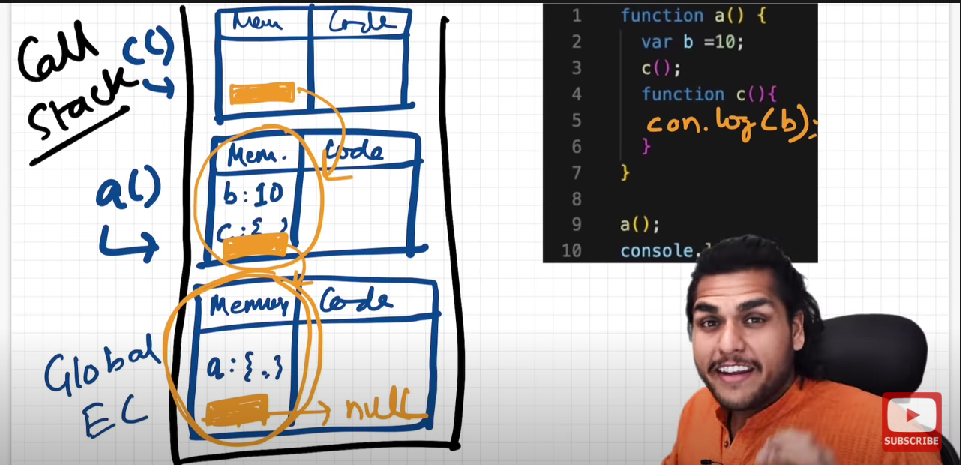 Call
Stack
c()
Mem
Code
a()
Mem.
Code
b:10
c:{ }
Global
EC
Memory
Code
a:{..}
null
1 function a() {
2 var b =10;
3 c();
4 function c(){
5 con.log(b);
6 }
7 }
8
9 a();
10 console.
SUBSCRIBE